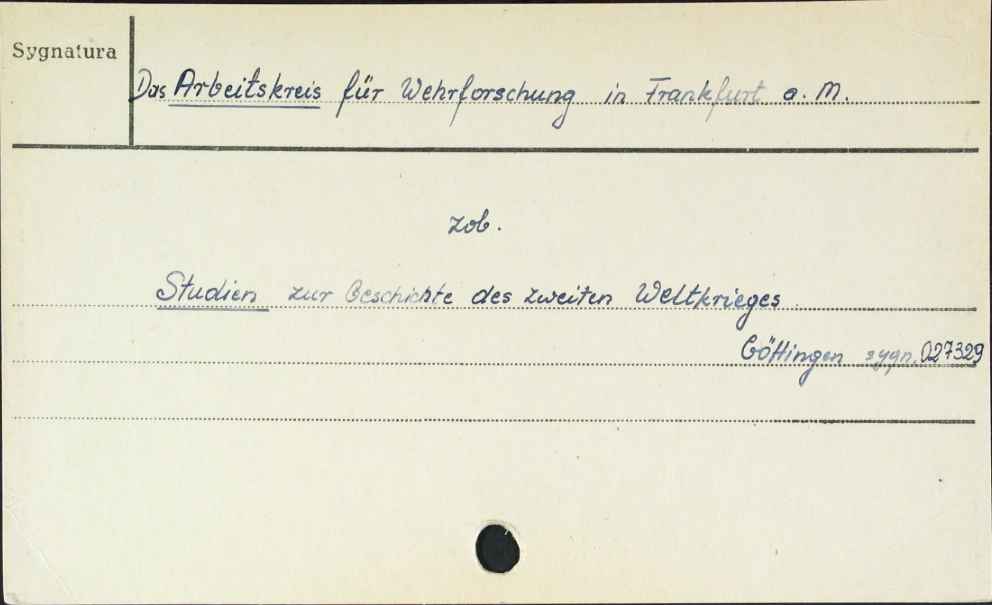 Sygnatura
Das Arbeitskreis für Wehrforschung in Frankfurt a. M.
zob.
Studien zur Geschichte des zweiten Weltkrieges
Göttingen sygn. 027329